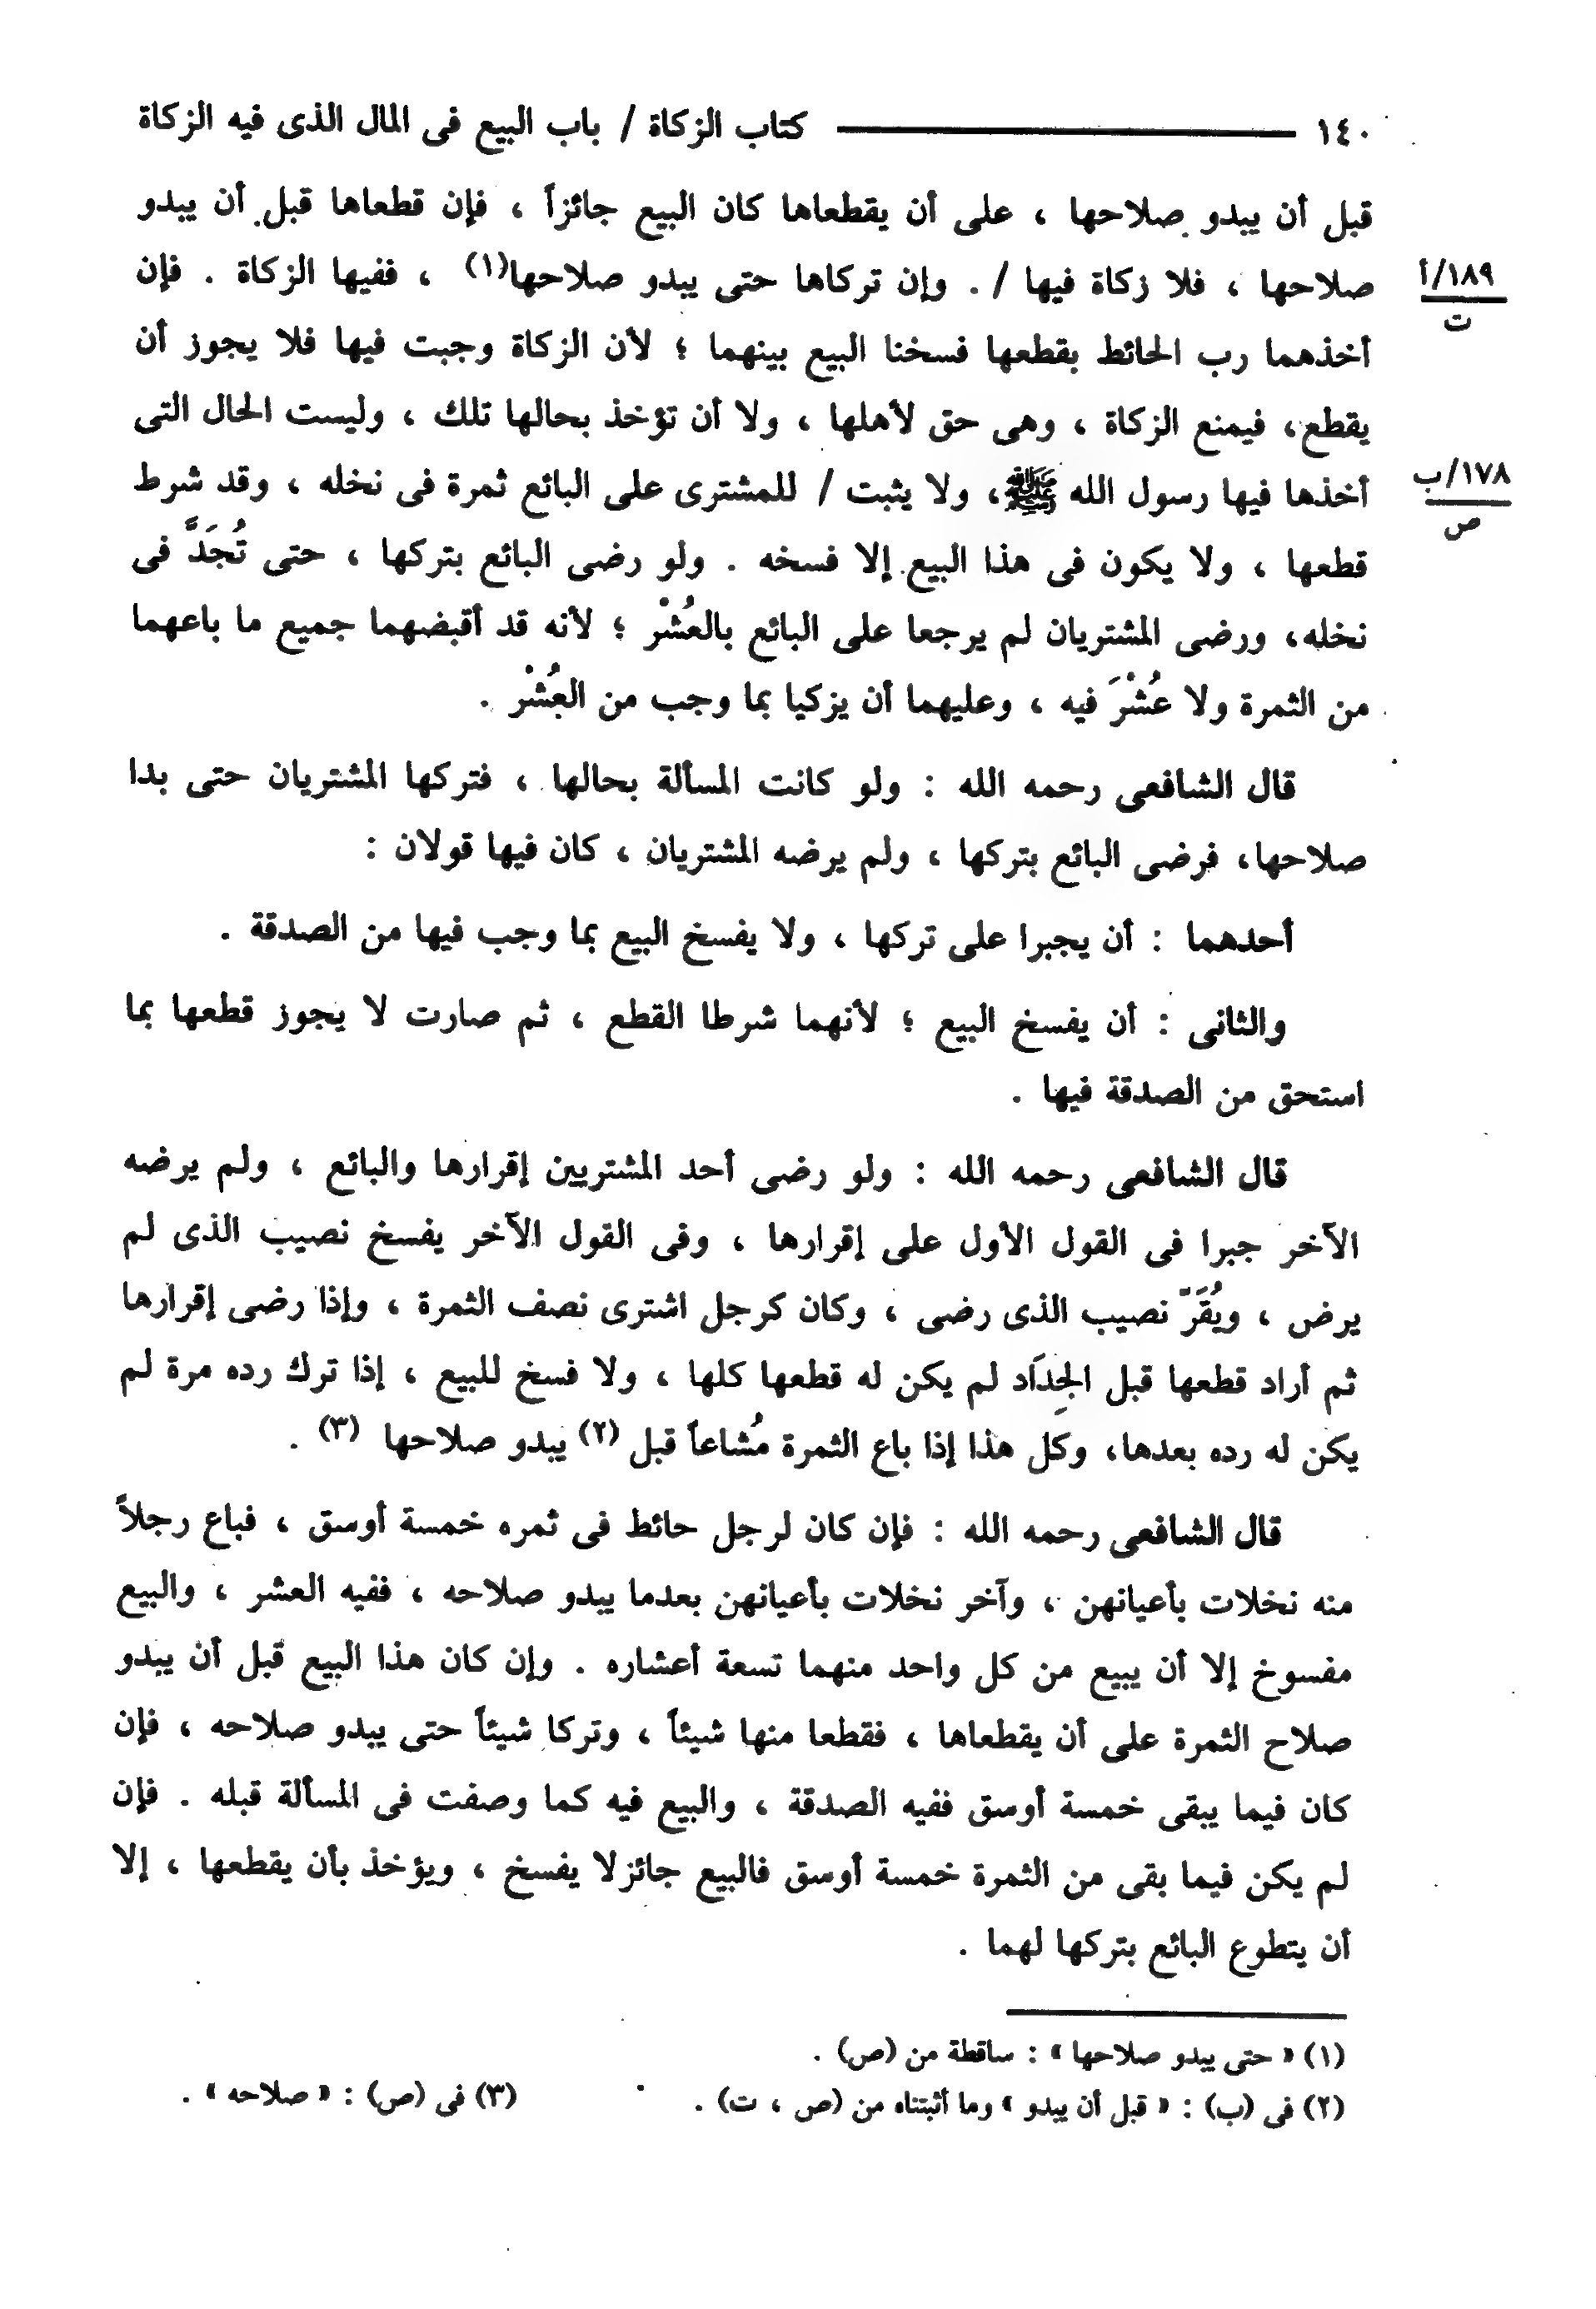 ١٤٠ كتاب الزكاة / باب البيع فى المال الذى فيه الزكاة
قبل أن يبدو صلاحها ، على أن يقطعاها كان البيع جائزاً ، فإن قطعاها قبل أن يبدو
صلاحها ، فلا زكاة فيها / . وإن تركاها حتى يبدو صلاحها(١) ، ففيها الزكاة . فإن
١٨٩/أ
ت
أخذهما رب الحائط بقطعها فسخنا البيع بينهما ؛ لأن الزكاة وجبت فيها فلا يجوز أن
يقطع، فيمنع الزكاة ، وهى حق لأهلها ، ولا أن تؤخذ بحالها تلك ، وليست الحال التى
أخذها فيها رسول الله ﷺ، ولا يثبت / للمشترى على البائع ثمرة فى نخله ، وقد شرط
١٧٨/ب
ص
قطعها ، ولا يكون فى هذا البيع إلا فسخه . ولو رضى البائع بتركها ، حتى تُجَدَّ فى
نخله، ورضى المشتريان لم يرجعا على البائع بالعُشْر ؛ لأنه قد أقبضهما جميع ما باعهما
من الثمرة ولا عُشْرَ فيه ، وعليهما أن يزكيا بما وجب من العُشْر .
قال الشافعى رحمه الله : ولو كانت المسألة بحالها ، فتركها المشتريان حتى بدا
صلاحها، فرضى البائع بتركها ، ولم يرضه المشتريان ، كان فيها قولان :
أحدهما : أن يجبرا على تركها ، ولا يفسخ البيع بما وجب فيها من الصدقة .
والثانى : أن يفسخ البيع ؛ لأنهما شرطا القطع ، ثم صارت لا يجوز قطعها بما
استحق من الصدقة فيها .
قال الشافعى رحمه الله : ولو رضى أحد المشتريين إقرارها والبائع ، ولم يرضه
الآخر جبرا فى القول الأول على إقرارها ، وفى القول الآخر يفسخ نصيب الذى لم
يرض ، ويُقَرّ نصيب الذى رضى ، وكان كرجل اشترى نصف الثمرة ، وإذا رضى إقرارها
ثم أراد قطعها قبل الجِدَاد لم يكن له قطعها كلها ، ولا فسخ للبيع ، إذا ترك رده مرة لم
يكن له رده بعدها، وكل هذا إذا باع الثمرة مُشاعاً قبل (٢) يبدو صلاحها (٣) .
قال الشافعى رحمه الله : فإن كان لرجل حائط فى ثمره خمسة أوسق ، فباع رجلاً
منه نخلات بأعيانهن ، وآخر نخلات بأعيانهن بعدما يبدو صلاحه ، ففيه العشر ، والبيع
مفسوخ إلا أن يبيع من كل واحد منهما تسعة أعشاره . وإن كان هذا البيع قبل أن يبدو
صلاح الثمرة على أن يقطعاها ، فقطعا منها شيئاً ، وتركا شيئاً حتى يبدو صلاحه ، فإن
كان فيما يبقى خمسة أوسق ففيه الصدقة ، والبيع فيه كما وصفت فى المسألة قبله . فإن
لم يكن فيما بقى من الثمرة خمسة أوسق فالبيع جائزلا يفسخ ، ويؤخذ بأن يقطعها ، إلا
أن يتطوع البائع بتركها لهما .
(١) « حتى يبدو صلاحها » : ساقطة من (ص) .
(٢) فى (ب) : « قبل أن يبدو » وما أثبتناه من (ص ، ت) . (٣) فى (ص) : « صلاحه » .